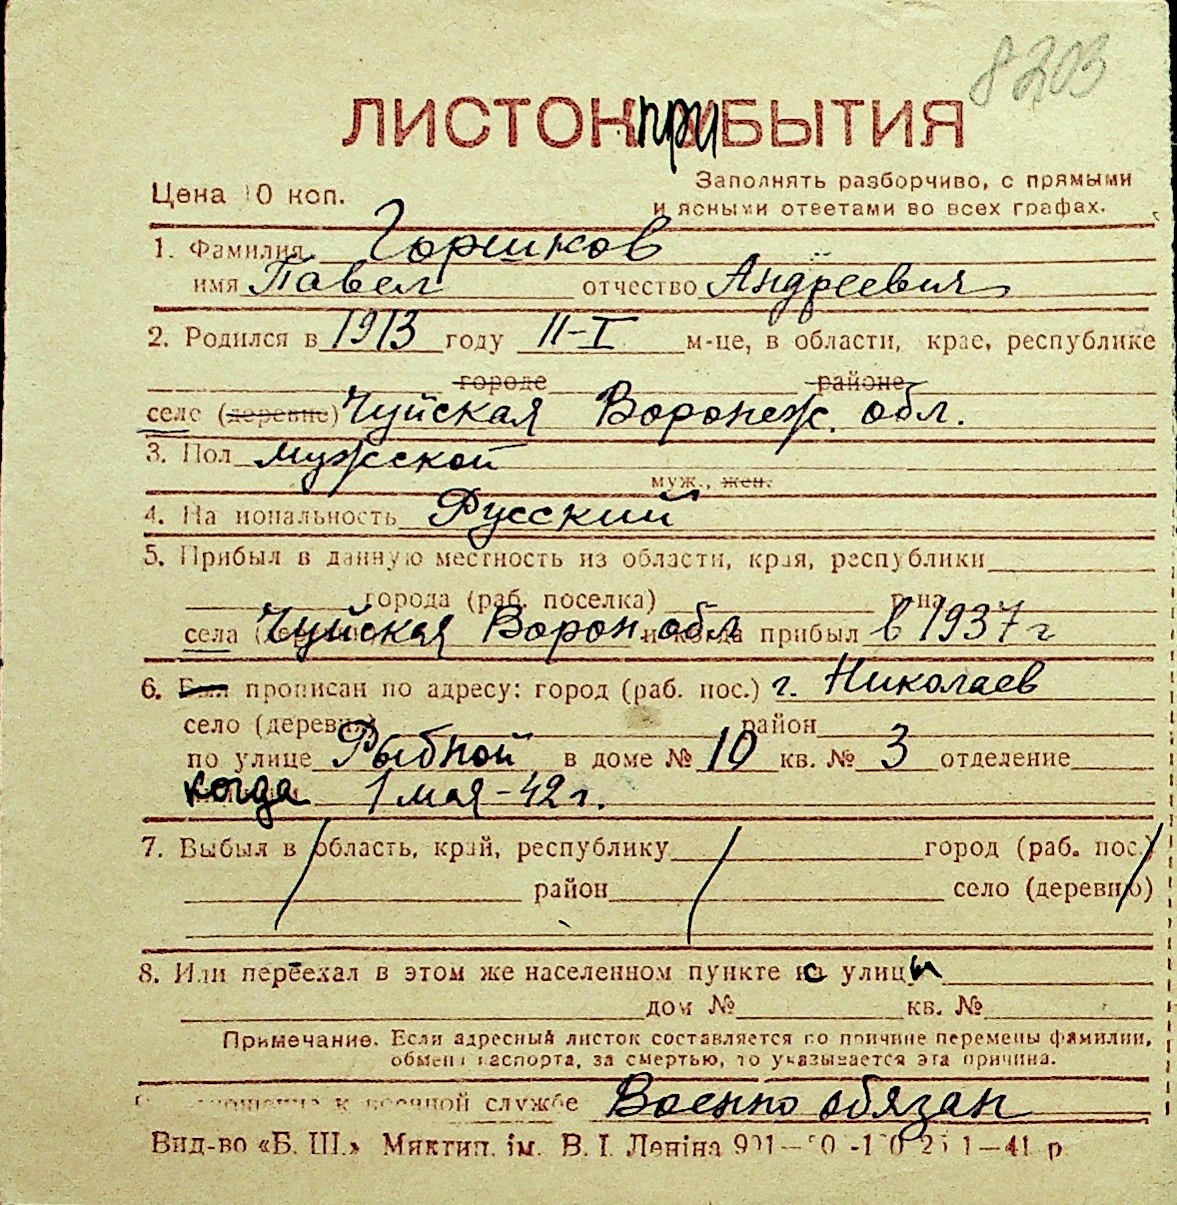 8203
ЛИСТОК приБЫТИЯ
Цена 10 коп.
Заполнять разборчиво, с прямыми
и ясными ответами во всех графах.
1. Фамилия Горшков
имя Павел отчество Андреевич
2. Родился в 1913 году 11-I м-це, в области, крае, республике
городе районе
селе (деревне) Чуйская Воронеж. обл.
3. Пол мужской
муж., жен.
4. Национальность Русский
5. Прибыл в данную местность из области, края, республики
города (раб. поселка) р-на
села Чуйская Ворон. обл и когда прибыл в 1937 г
6. Был прописан по адресу: город (раб. пос.) г. Николаев
село (деревня) район
по улице Рыбной в доме № 10 кв. № 3 отделение
когда 1 мая-42 г.
7. Выбыл в область, край, республику город (раб. пос.)
район село (деревню)
8. Или переехал в этом же населенном пункте с улицы
дом № кв. №
Примечание. Если адресный листок составляется по причине перемены фамилии,
обмена паспорта, за смертью, то указывается эта причина.
к военной службе Военно обязан
Вид-во «Б. Ш.» Миктип. ім. В. І. Леніна 1—41 р.